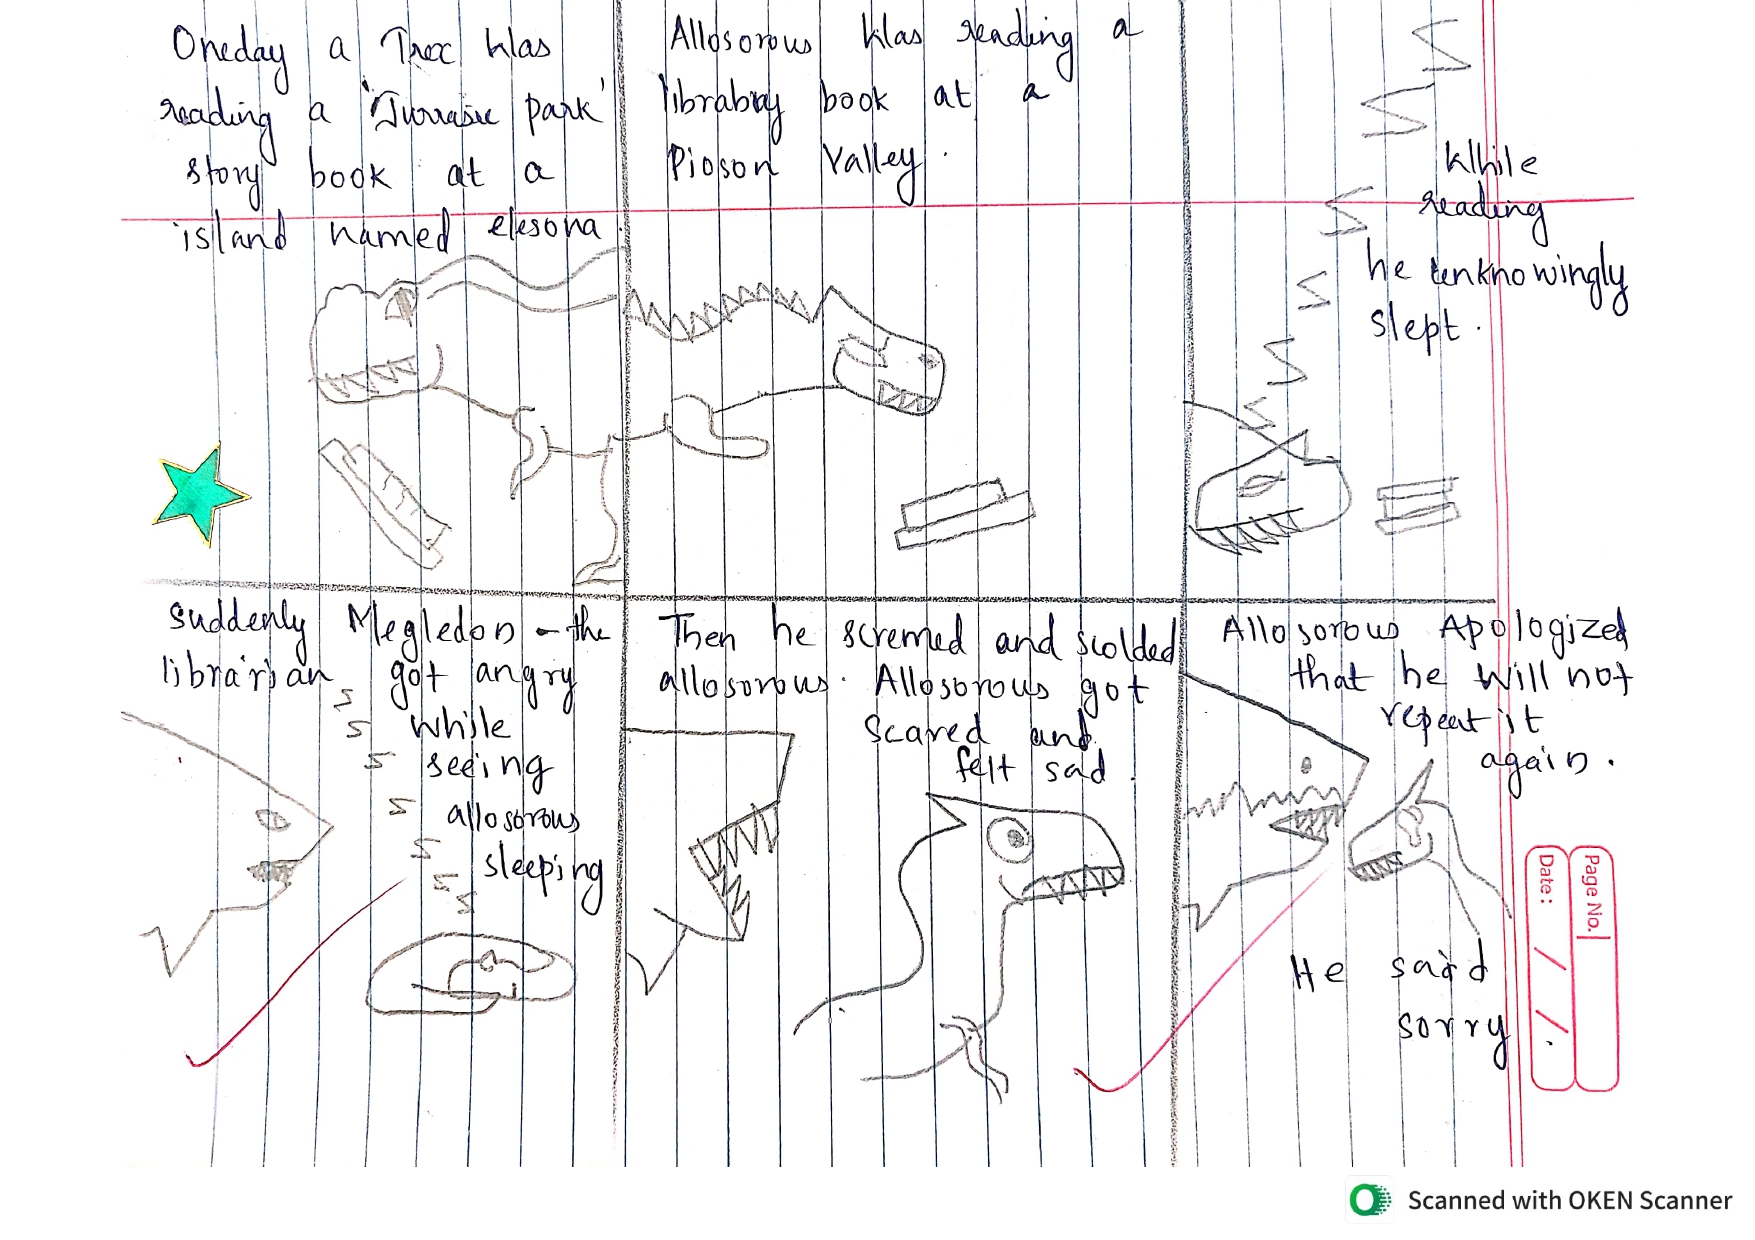 Oneday a Trex Was
reading a 'Jurrasic park'
story book at a
island named elesona.
Allosorous Was reading a
library book at a
Pioson Valley.
While
reading
he unknowingly
slept.
Suddenly Megledon - the
librarian got angry
while
seeing
allosorous
sleeping
Then he scremed and scolded
allosorous. Allosorous got
scared and
felt sad.
Allosorous Apologized
that he Will not
repeat it
again.
He said
sorry
Page No.
Date:
Scanned with OKEN Scanner